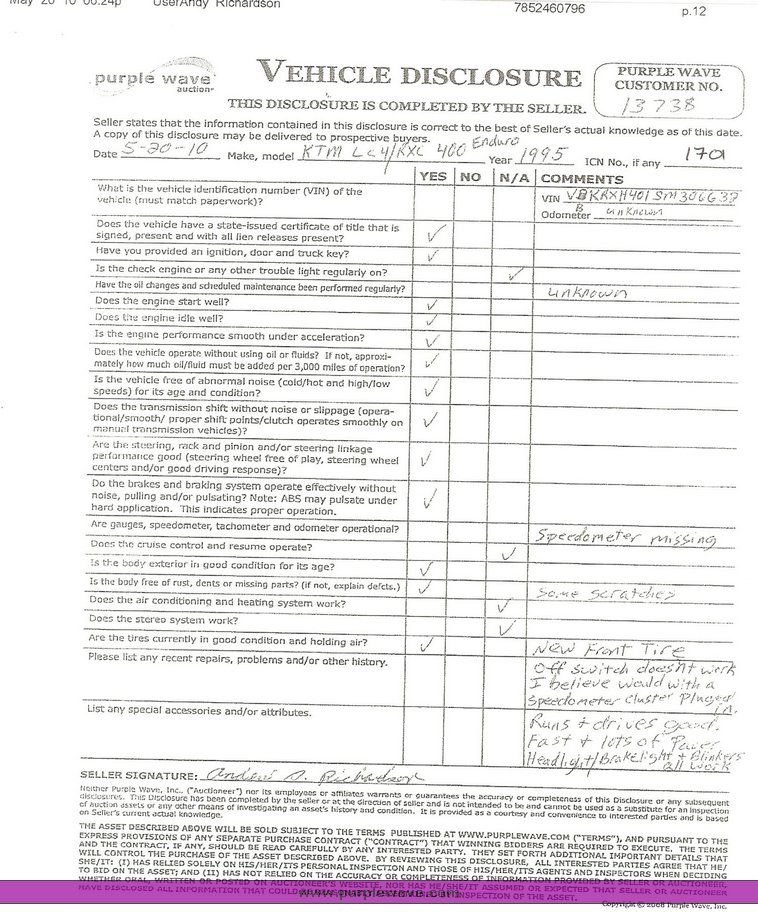 May 20 10 06:24p UserAndy Richardson 7852460796 p.12
purple wave
auction
VEHICLE DISCLOSURE
THIS DISCLOSURE IS COMPLETED BY THE SELLER.
PURPLE WAVE
CUSTOMER NO.
13738
Seller states that the information contained in this disclosure is correct to the best of Seller's actual knowledge as of this date.
A copy of this disclosure may be delivered to prospective buyers.
Date 5-20-10 Make, model KTM LC4/RXC 400 Enduro Year 1995 ICN No., if any 1701
YES NO N/A COMMENTS
What is the vehicle identification number (VIN) of the
vehicle (must match paperwork)?
VIN
Odometer unknown
Does the vehicle have a state-issued certificate of title that is
signed, present and with all lien releases present? ✓
Have you provided an ignition, door and truck key? ✓
Is the check engine or any other trouble light regularly on? ✓
Have the oil changes and scheduled maintenance been performed regularly? unknown
Does the engine start well? ✓
Does the engine idle well? ✓
Is the engine performance smooth under acceleration? ✓
Does the vehicle operate without using oil or fluids? If not, approxi-
mately how much oil/fluid must be added per 3,000 miles of operation? ✓
Is the vehicle free of abnormal noise (cold/hot and high/low
speeds) for its age and condition? ✓
Does the transmission shift without noise or slippage (opera-
tional/smooth/ proper shift points/clutch operates smoothly on
manual transmission vehicles)? ✓
Are the steering, rack and pinion and/or steering linkage
performance good (steering wheel free of play, steering wheel
centers and/or good driving response)? ✓
Do the brakes and braking system operate effectively without
noise, pulling and/or pulsating? Note: ABS may pulsate under
hard application. This indicates proper operation. ✓
Are gauges, speedometer, tachometer and odometer operational? Speedometer missing
Does the cruise control and resume operate? ✓
Is the body exterior in good condition for its age? ✓
Is the body free of rust, dents or missing parts? (if not, explain defcts.) ✓ Some scratches
Does the air conditioning and heating system work? ✓
Does the stereo system work? ✓
Are the tires currently in good condition and holding air? ✓ New Front Tire
Please list any recent repairs, problems and/or other history.
Off switch doesnt work
I believe would with a
Speedometer cluster Pluged
in.
List any special accessories and/or attributes.
Runs + drives good.
Fast + lots of Power
Headlight/Brakelight + Blinkers
all work
SELLER SIGNATURE: Andrew D. Richardson
Neither Purple Wave, Inc. ("Auctioneer") nor its employees or affiliates warrants or guarantees the accuracy or completeness of this Disclosure or any subsequent
disclosures. This Disclosure has been completed by the seller or at the direction of seller and is not intended to be and cannot be used as a substitute for an inspection
of auction assets or any other means of investigating an asset's history and condition. It is provided as a courtesy and convenience to interested parties and is based
on Seller's current actual knowledge.
THE ASSET DESCRIBED ABOVE WILL BE SOLD SUBJECT TO THE TERMS PUBLISHED AT WWW.PURPLEWAVE.COM ("TERMS"), AND PURSUANT TO THE
EXPRESS PROVISIONS OF ANY SEPARATE PURCHASE CONTRACT ("CONTRACT") THAT WINNING BIDDERS ARE REQUIRED TO EXECUTE. THE TERMS
AND THE CONTRACT, IF ANY, SHOULD BE READ CAREFULLY BY ANY INTERESTED PARTY. THEY SET FORTH ADDITIONAL IMPORTANT DETAILS THAT
WILL CONTROL THE PURCHASE OF THE ASSET DESCRIBED ABOVE. BY REVIEWING THIS DISCLOSURE, ALL INTERESTED PARTIES AGREE THAT HE/
SHE/IT: (I) HAS RELIED SOLELY ON HIS/HER/ITS PERSONAL INSPECTION AND THOSE OF HIS/HER/ITS AGENTS AND INSPECTORS WHEN DECIDING
TO BID ON THE ASSET; AND (II) HAS NOT RELIED ON THE ACCURACY OR COMPLETENESS OF INFORMATION PROVIDED BY SELLER OR AUCTIONEER,
WHETHER ORAL, WRITTEN OR POSTED ON AUCTIONEER'S WEBSITE, NOR HAS HE/SHE/IT ASSUMED OR EXPECTED THAT SELLER OR AUCTIONEER
HAVE DISCLOSED ALL INFORMATION THAT INSPECTION OF THE ASSET.
www.purplewave.com
Copyright © 2008 Purple Wave, Inc.